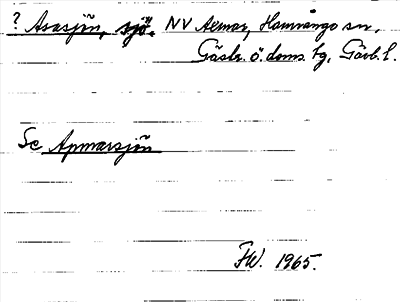 ? Asasjön, sjö. NV Axmar, Hamrånge sn,
Gästr. ö. doms. tg, Gävb. l.
Se Apmarsjön
FW. 1965.